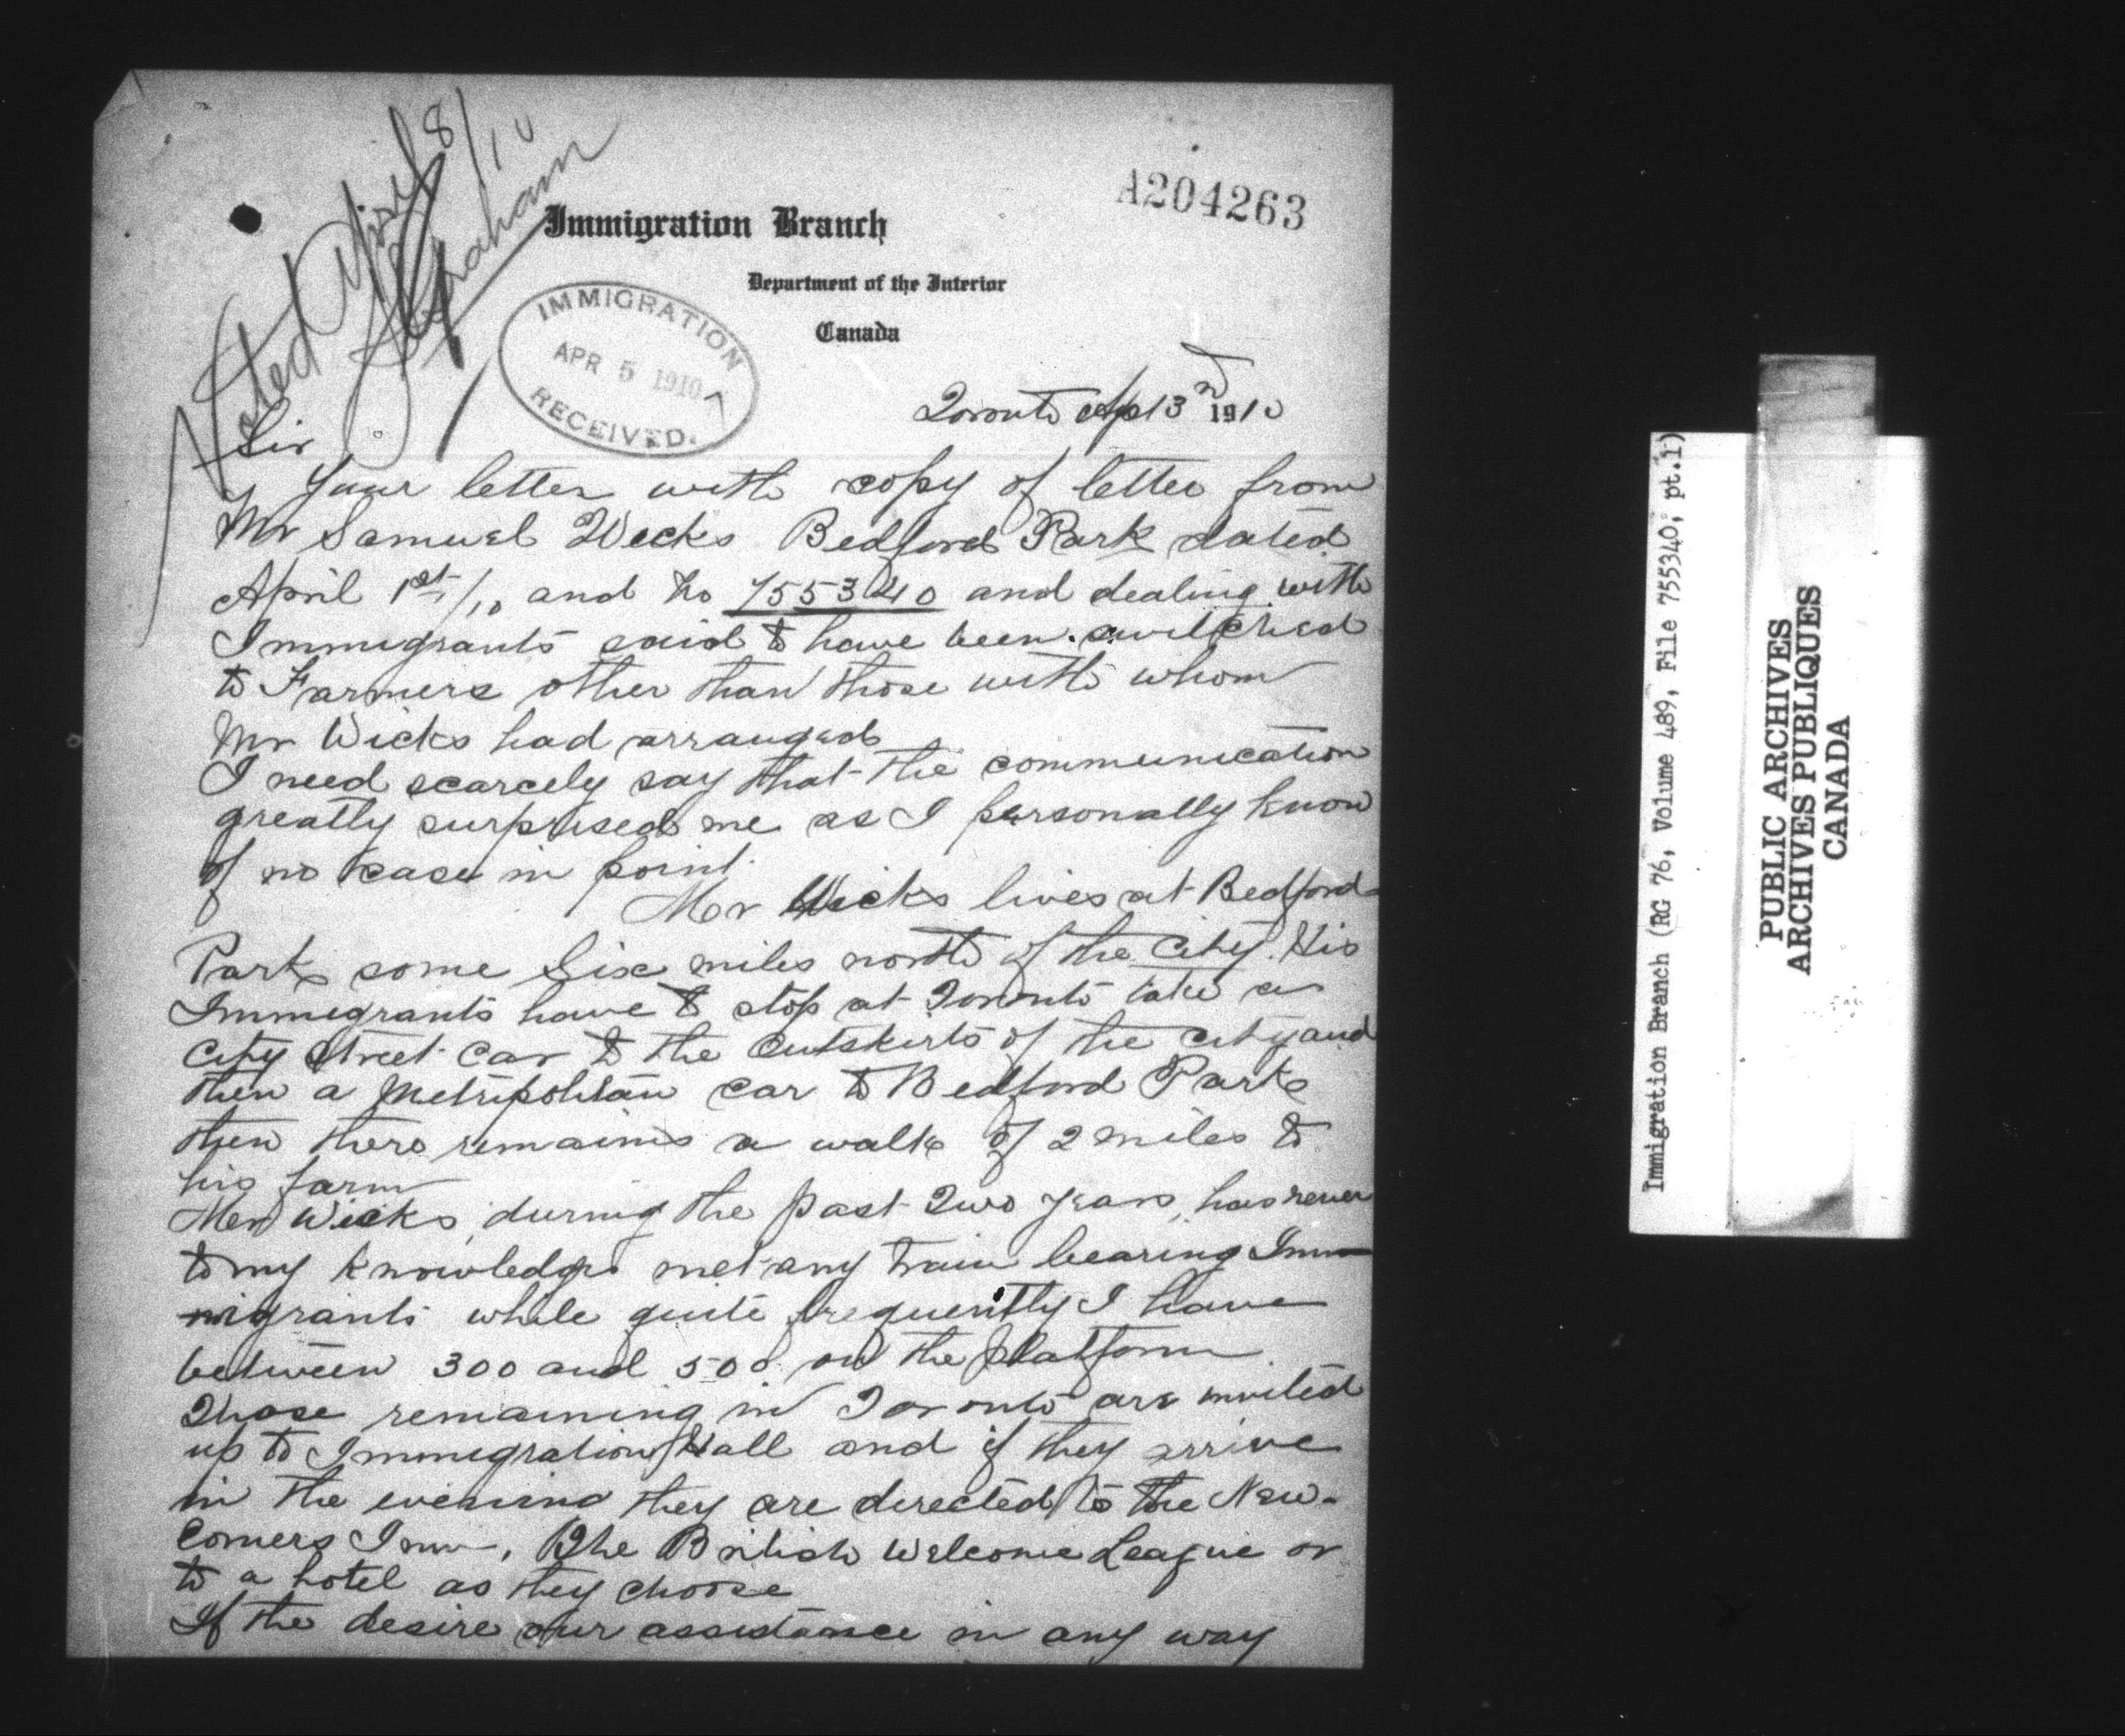 Noted April 8/10
Graham
A204263
Immigration Branch
Department of the Interior
Canada
IMMIGRATION
APR 5 1910
RECEIVED.
Toronto Apl 3rd 1910
Sir
Your letter with copy of letter from
Mr Samuel Wicks Bedford Park dated
April 1st/10 and No 755340 and dealing with
Immigrants said to have been switched
to Farmers other than those with whom
Mr Wicks had arranged
I need scarcely say that the communication
greatly surprised me as I personally know
of no case in point.
Mr Wicks lives at Bedford
Park some six miles north of the City. His
Immigrants have to stop at Toronto take a
City Street Car to the Outskirts of the City and
then a Metripolitan car to Bedford Park
then there remains a walk of 2 miles to
his farm
Mr Wicks, during the past Two years, has never
to my knowledge met any train bearing Imm-
migrants while quite frequently I have
between 300 and 500 on the platform
Those remaining in Toronto are invited
up to Immigration Hall and if they arrive
in the evening they are directed to the New-
Comers Inn, The British Welcome League or
to a hotel as they choose
If the desire our assistance in any way
Immigration Branch (RG 76, Volume 489, File 755340, pt.1)
PUBLIC ARCHIVES
ARCHIVES PUBLIQUES
CANADA